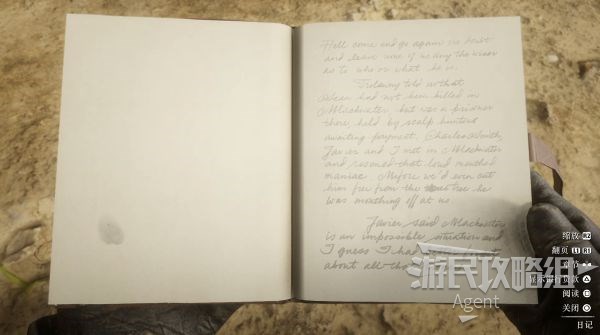 He'll come and go again no doubt
and leave none of us any the wiser
as to who or what he is.
Trelawny told us that
Sean had not been killed in
Blackwater, but was a prisoner
there, held by scalp hunters
awaiting payment. Charles Smith,
Javier and I met in Blackwater
and rescued that loud mouthed
maniac. Before we'd even cut
him free from the tree he
was mouthing off at us.
Javier said Blackwater
is an impossible situation and
I guess I
about all
游民攻略组
Agent
缩放 R2
翻页 L1 R1
阅读
关闭
日记